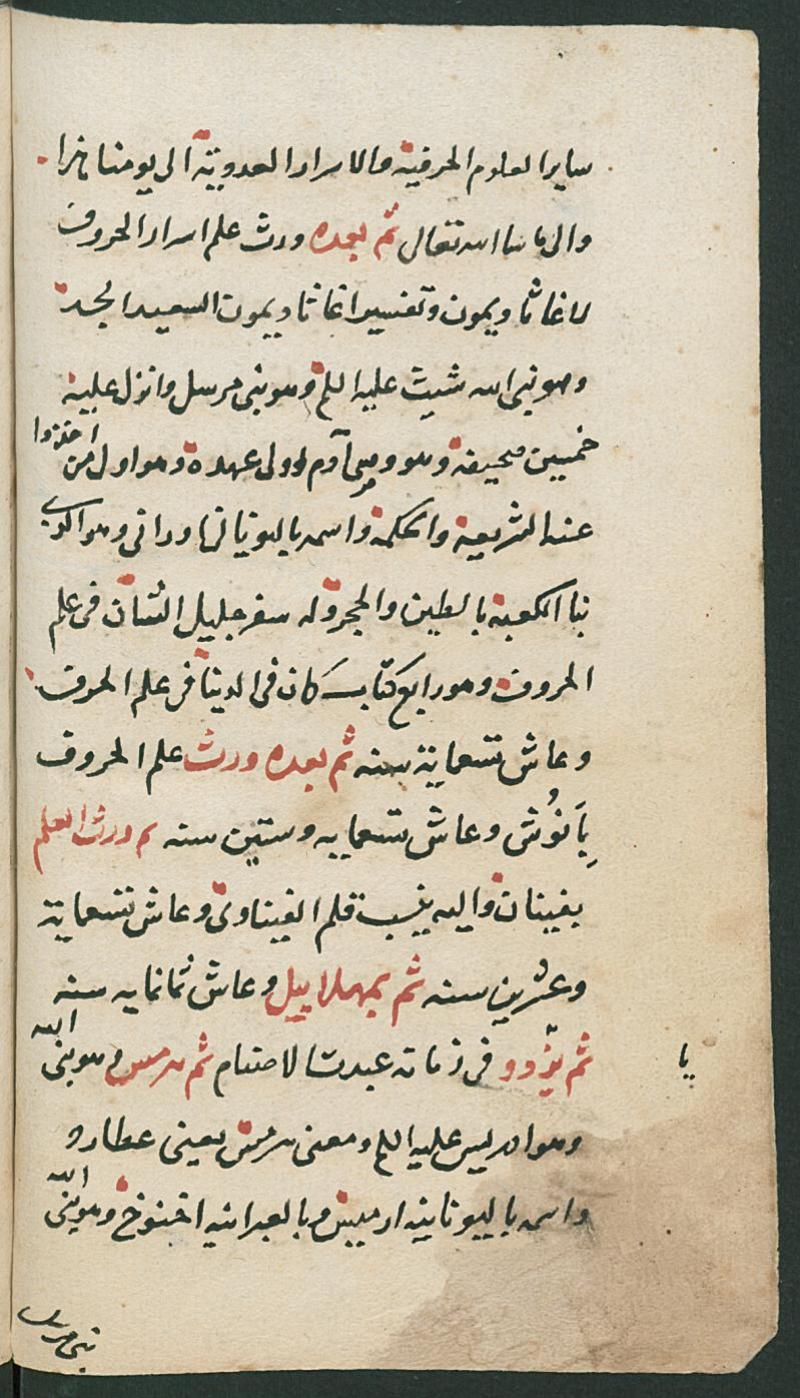 ساير العلوم الحرفية والاسرار العددية الى يومنا هذا
والى ما شا الله تعالى ثم بعده ورث علم اسرار الحروف
لاغاثا ويمون وتفسير اغاثا ويموت السعيد الجد
وهو نبى الله شيث عليه السلم وهو نبى مرسل وانزل عليه
خمسين صحيفة وهو وصى آدم وولى عهده وهو اول من اخذوا
عنه الشريعة والحكمة واسمه باليونانى اورانى وهو الذى
بنا الكعبة بالطين والحجر وله سفر جليل الشان فى علم
الحروف وهو رابع كتاب كان فى الدنيا فى علم الحرف
وعاش تسعماية سنه ثم بعده ورث علم الحروف
بَانُوش وعاش تسعمايه وستين سنه ثم ورث العلم
بقينان واليه ينسب قلم القيناوى وعاش تسعماية
وعشرين سنه ثم بمهلاييل وعاش ثمانمايه سنه
ثم يزدو فى زمانه عبدت الاصنام ثم هرمس وهو نبى الله
وهو ادريس عليه السلم ومعنى هرمس يعنى عطارد
واسمه باليونانيه ارميس وبالعبرانيه اخنوخ وهو نبى الله
يا
نبى مرسل